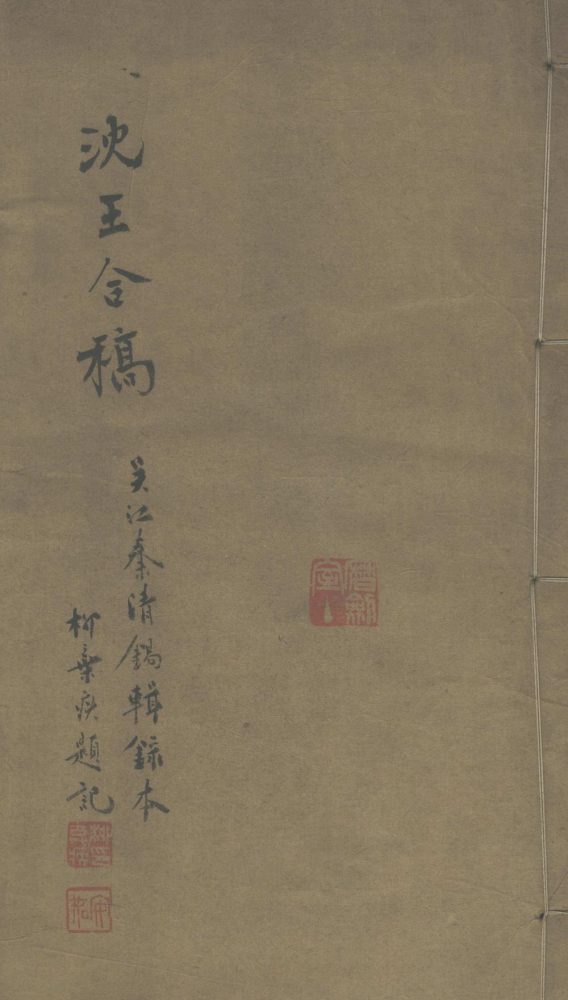 沈王合稿
吴江秦清錫輯録本
柳棄疾題記